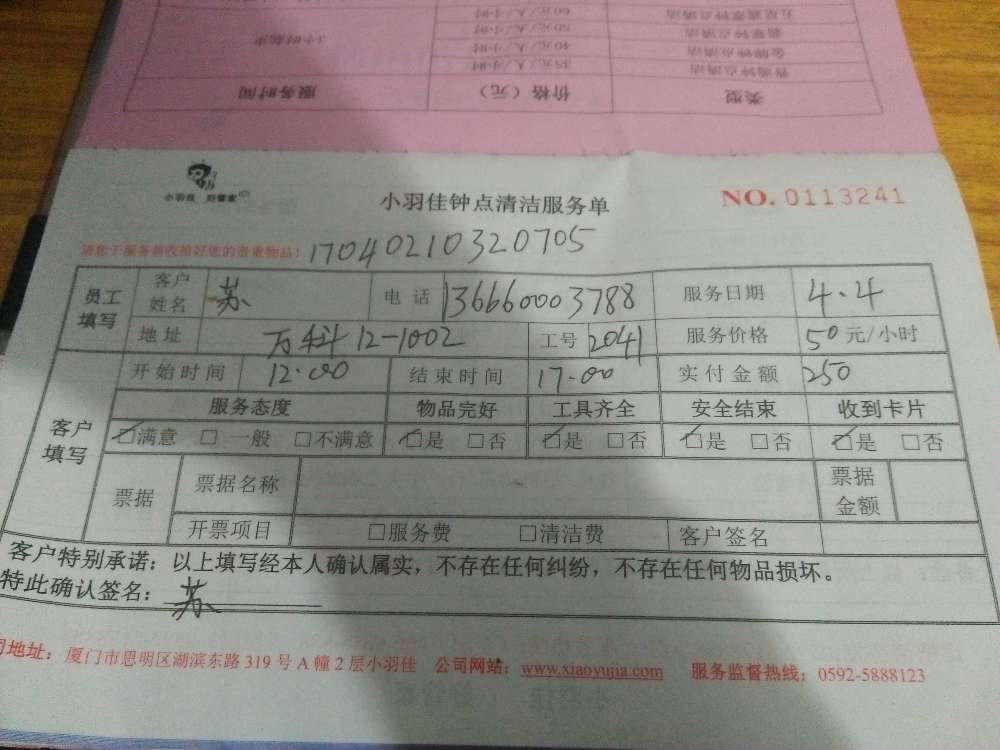 五星翡翠钟点清洁 60元/人/小时
翡翠钟点清洁 50元/人/小时
金牌钟点清洁 40元/人/小时 3小时起步
普通钟点清洁 35元/人/小时
类型 价格（元） 服务时间
小羽佳 好管家
小羽佳钟点清洁服务单
NO. 0113241
请您于服务前收拾好您的贵重物品！
17040210320705
员工填写 客户姓名 苏 电话 13666003788 服务日期 4.4
地址 万科12-1002 工号 2041 服务价格 50元/小时
客户填写 开始时间 12:00 结束时间 17:00 实付金额 250
服务态度 物品完好 工具齐全 安全结束 收到卡片
☑满意 □一般 □不满意 ☑是 □否 ☑是 □否 ☑是 □否 ☑是 □否
票据 票据名称 票据金额
开票项目 □服务费 □清洁费 客户签名
客户特别承诺：以上填写经本人确认属实，不存在任何纠纷，不存在任何物品损坏。
特此确认签名：苏
司地址：厦门市思明区湖滨东路319号A幢2层小羽佳 公司网站：www.xiaoyujia.com 服务监督热线：0592-5888123